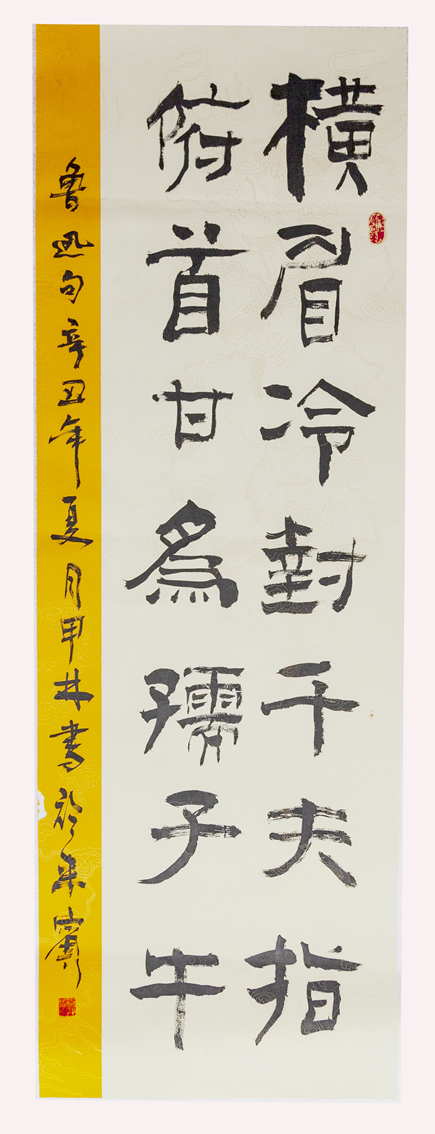 橫眉冷對千夫指
俯首甘爲孺子牛
魯迅句辛丑年夏月甲林書於